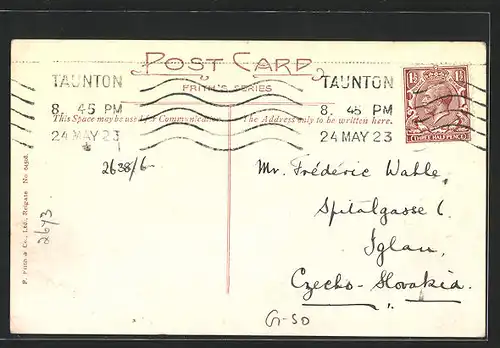 POST CARD
FRITH'S SERIES
TAUNTON
8. 45 PM
24 MAY 23
TAUNTON
8. 45 PM
24 MAY 23
1½ 1½
THREE HALFPENCE
This Space may be used for Communication.
The Address only to be written here.
2638/6
2643
F. Frith & Co., Ltd., Reigate. No.
Mr. Frédéric Wahle
Spitalgasse 6
Iglau,
Czecho-Slovakia.
G-SO